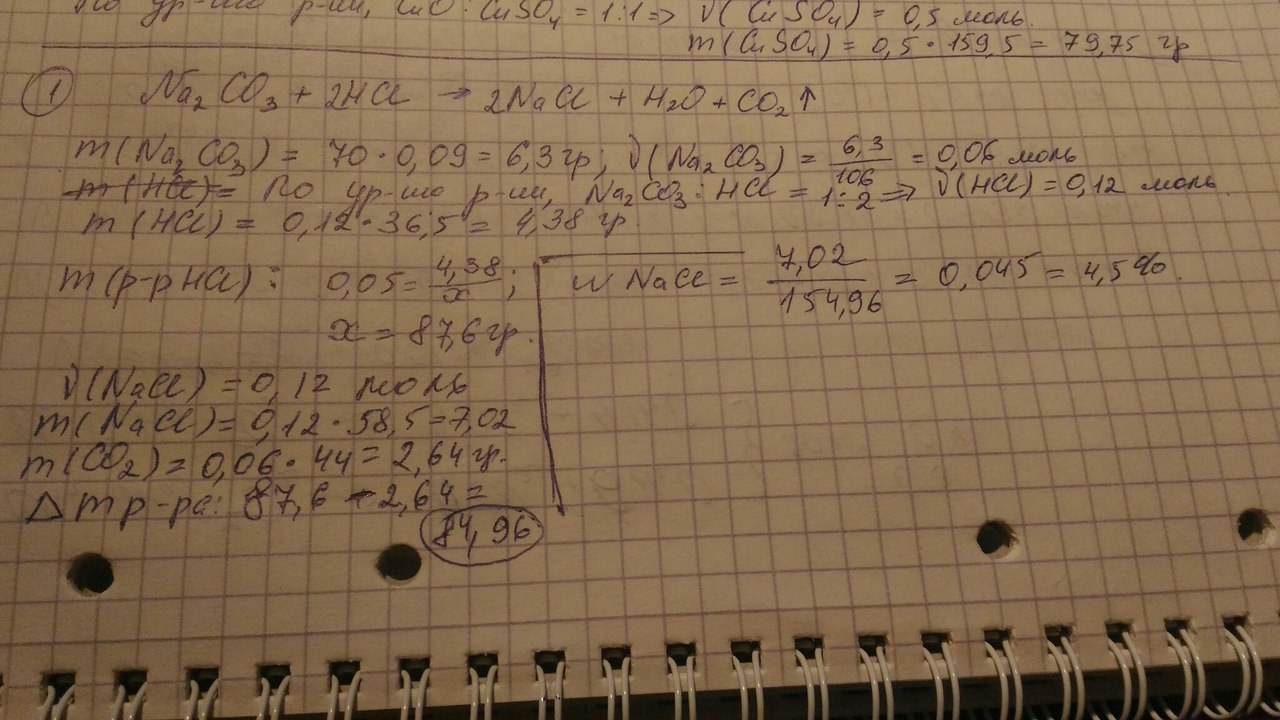 По ур-ию р-ии, CuO : CuSO4 = 1:1 => ν(CuSO4) = 0,5 моль.
m(CuSO4) = 0,5 · 159,5 = 79,75 гр
1 Na2CO3 + 2HCl → 2NaCl + H2O + CO2↑
m(Na2CO3) = 70 · 0,09 = 6,3 гр; ν(Na2CO3) = 6,3/106 = 0,06 моль
m(HCl) = По ур-ию р-ии, Na2CO3 : HCl = 1:2 => ν(HCl) = 0,12 моль.
m(HCl) = 0,12 · 36,5 = 4,38 гр.
m(р-р HCl): 0,05 = 4,38/x;
x = 87,6 гр.
ν(NaCl) = 0,12 моль
m(NaCl) = 0,12 · 58,5 = 7,02
m(CO2) = 0,06 · 44 = 2,64 гр.
Δ m р-ра: 87,6 - 2,64 =
84,96
w NaCl = 7,02/154,96 = 0,045 = 4,5%.